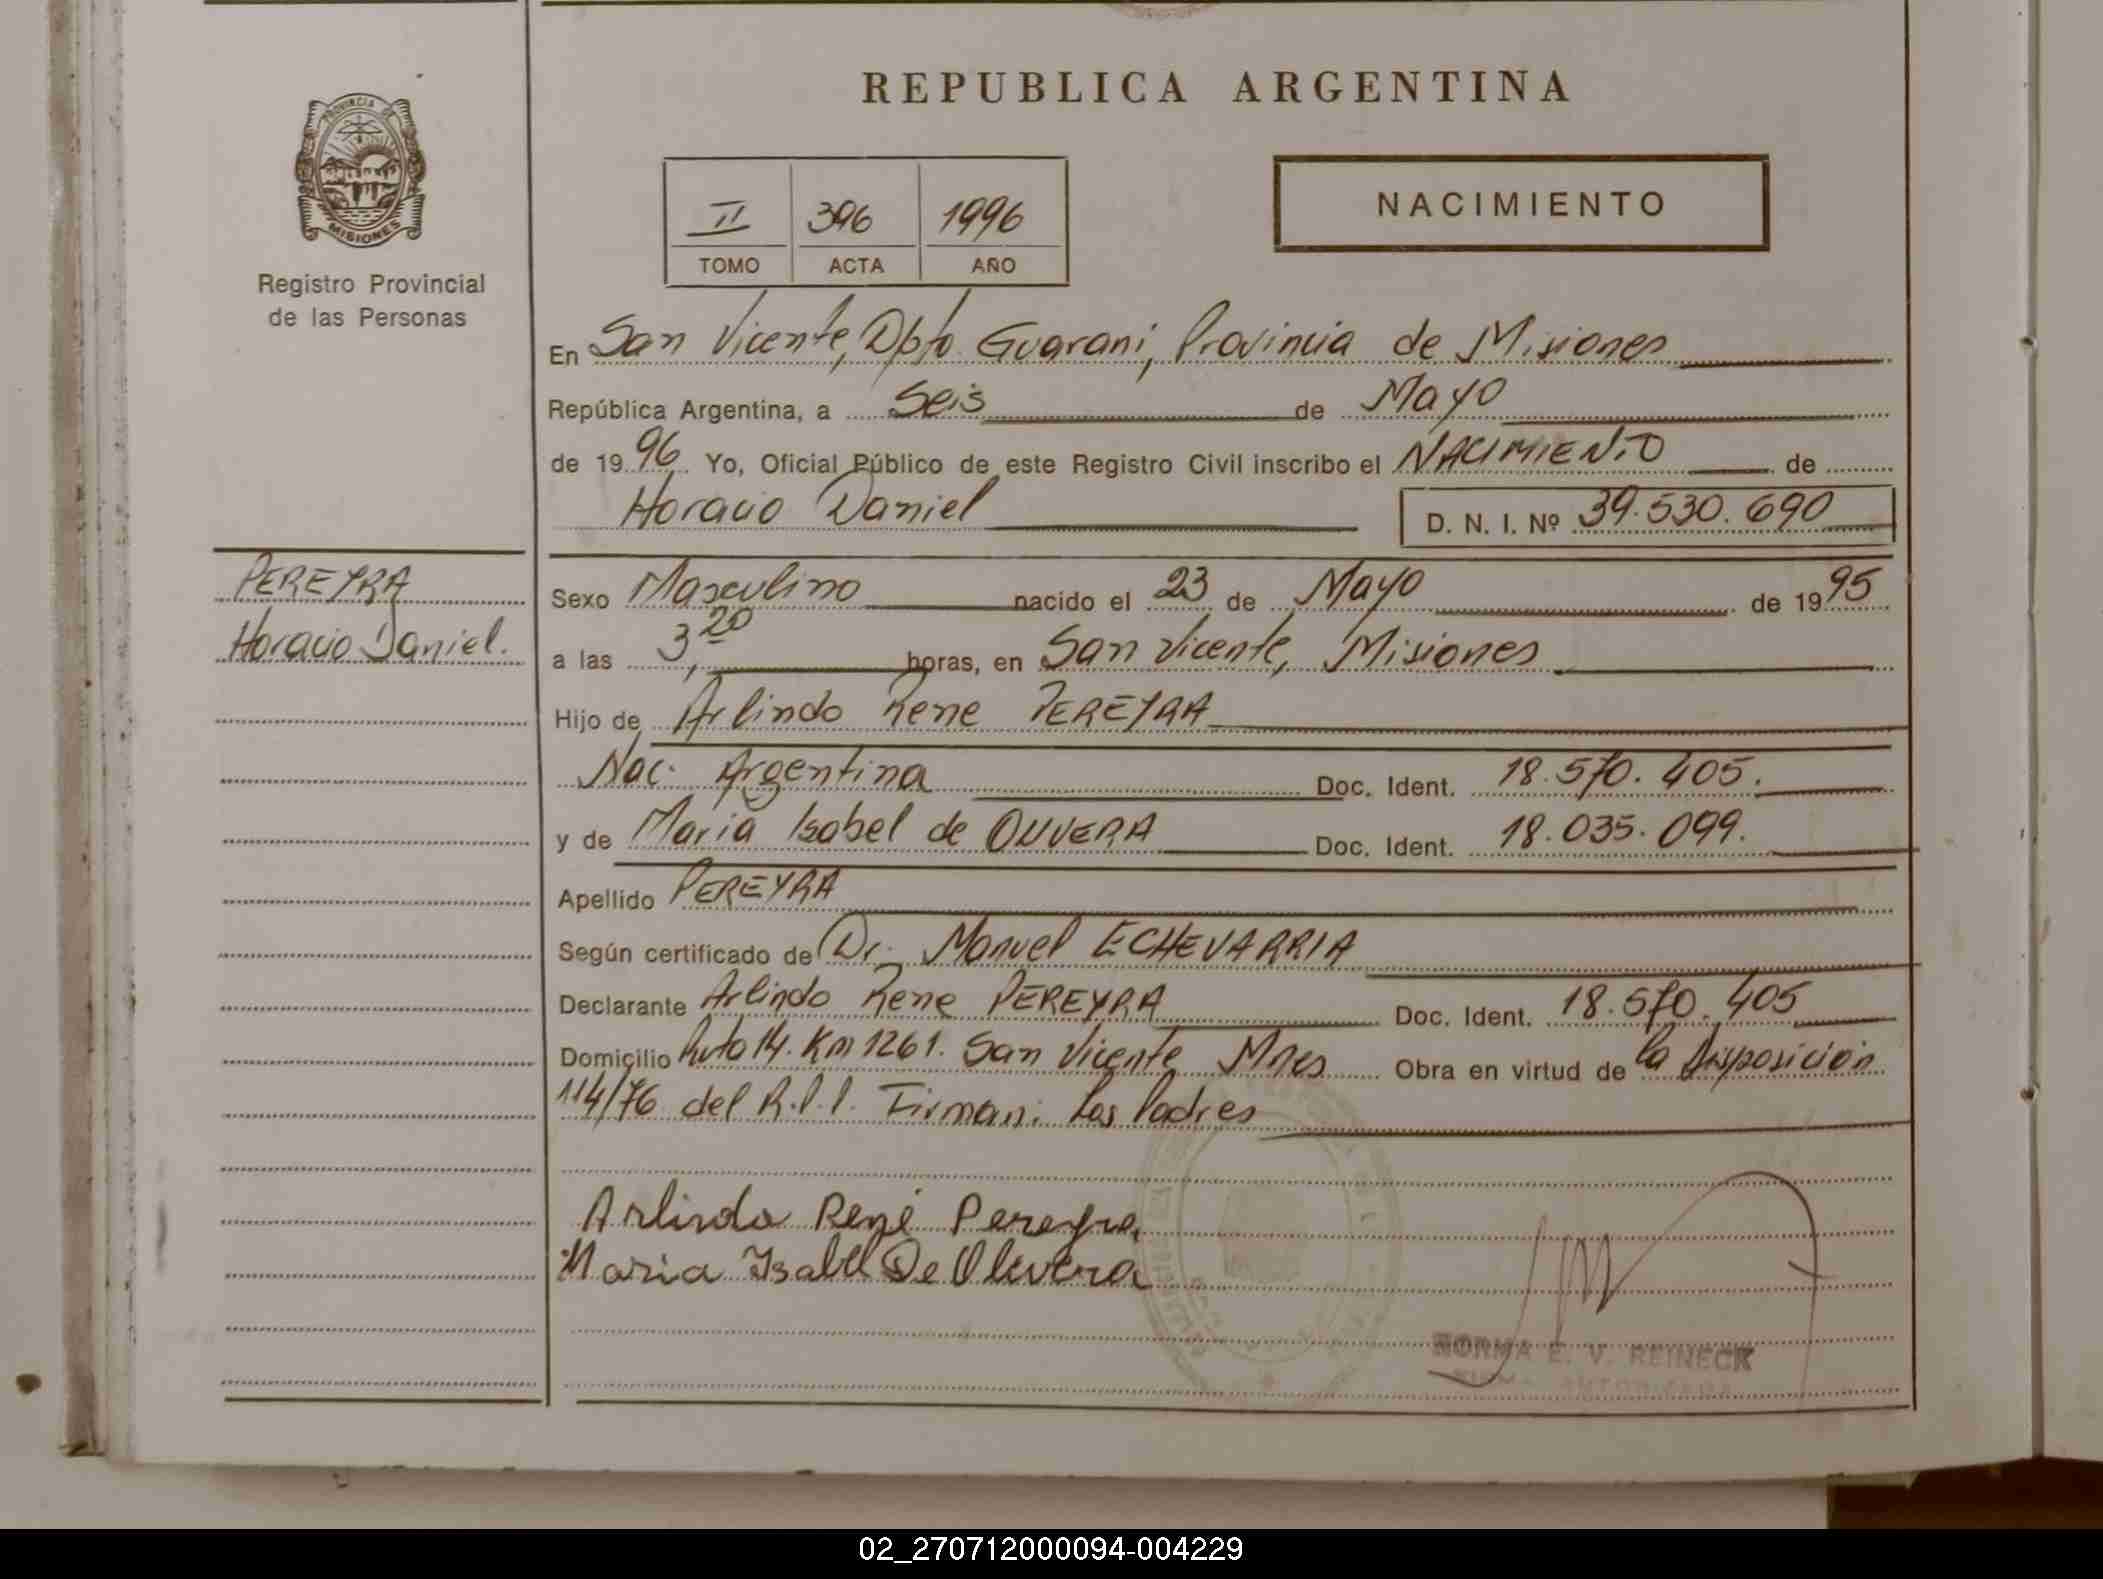 REPUBLICA ARGENTINA
PROVINCIA DE
MISIONES
Registro Provincial
de las Personas
II 396 1996
TOMO ACTA AÑO
NACIMIENTO
En San Vicente, Dpto. Guarani, Provincia de Misiones
República Argentina, a Seis de Mayo
de 1996 Yo, Oficial Público de este Registro Civil inscribo el NACIMIENTO de
Horacio Daniel D. N. I. Nº 39.530.690
PEREYRA
Horacio Daniel.
Sexo Masculino nacido el 23 de Mayo de 1995
a las 3,20 horas, en San Vicente, Misiones
Hijo de Arlindo Rene PEREYRA
Nac. Argentina Doc. Ident. 18.570.405.
y de Maria Isabel de OLIVERA Doc. Ident. 18.035.099.
Apellido PEREYRA
Según certificado de Dr. Manuel ECHEVARRIA
Declarante Arlindo Rene PEREYRA Doc. Ident. 18.570.405
Domicilio Ruta 14. Km 1261. San Vicente Mnes Obra en virtud de la Disposición
114/76 del R.P.P. Firman: Los Padres
Arlindo René Pereyra
Maria Isabel De Olivera
NORMA E. V. REINECK
FIRMA AUTORIZADA
02_270712000094-004229